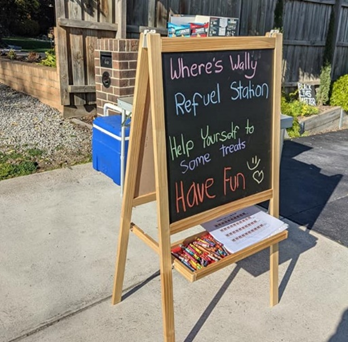 Where's Wally
Refuel Station
Help Yourself to
some treats
Have Fun